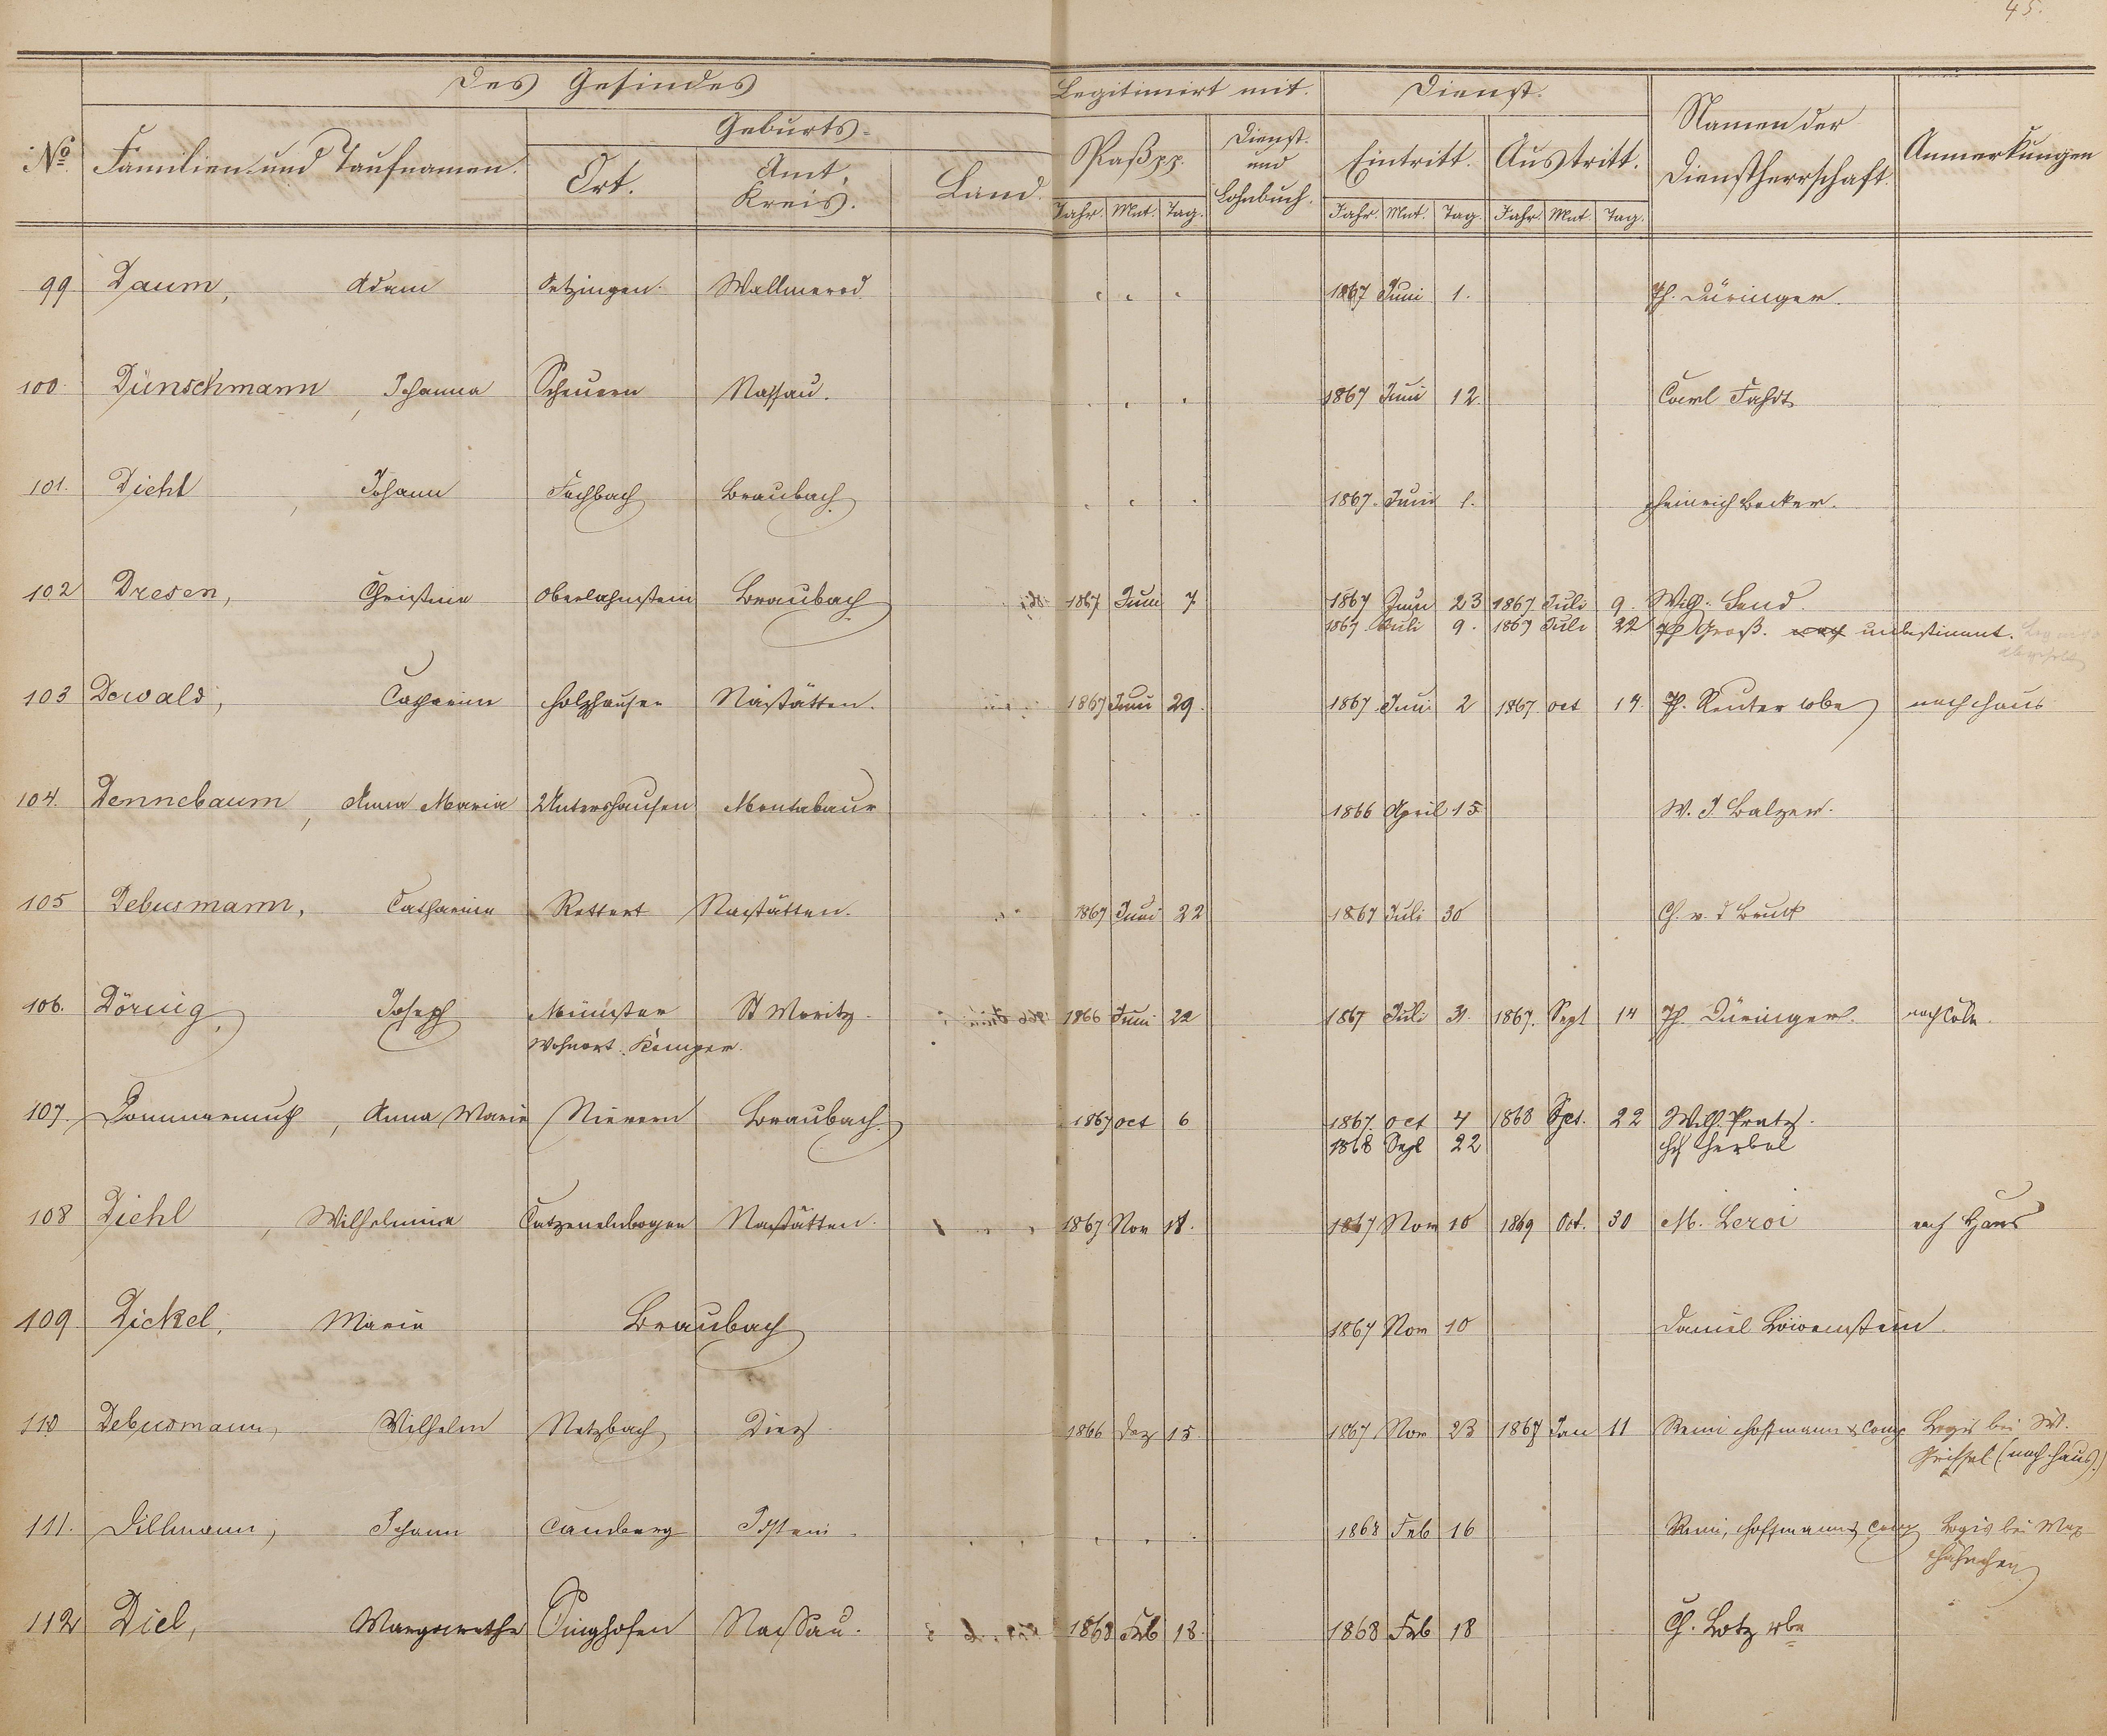 45.
Des Gesindes
Legitimirt mit.
Dienst.
No.
Familien und Taufnamen.
Geburts-
Ort.
Amt, Kreis.
Land.
Paß pp.
Dienst- und Lohnbuch.
Eintritt.
Austritt.
Namen der Dienstherrschaft.
Anmerkungen
Jahr. Mnt. Tag. Jahr. Mnt. Tag. Jahr. Mnt. Tag.
99 Daum, Adam Setzingen. Wallmerod 1867 Juni 1. Th. Düringer.
100. Dünschmann, Johanna Scheuern Nassau. 1867 Juni 12. Carl
101. Diehl, Johann Fachbach Braubach 1867. Juni 1. Heinrich Becker.
102 Dresen, Christina Oberlahnstein Braubach 1867 Juni 7 1867 Juni 23 1867 Juli 9. Wilh. Send.
1867 Juli 9. 1867 Juli 22 Groß. unbestimmt.
103 Dewald, Catharina Holzhausen Nastätten. 1867 Juni 29. 1867 Juni 2 1867 oct 14. Th. Reuter wbe nach Haus
104. Dennebaum, Anna Maria Untershausen Montabaur 1866 April 15 W. J. Balzer.
105 Debusmann, Catharina Rettert Nastätten. 1867 Juni 22 1867 Juli 30 Ch. v. d Bruck
106. Döring, Joseph Münster St Moritz 1866 Juni 22 1867 Juli 31. 1867. Sept 14 Th. Düringer. nach Cöln.
Wohnort Kemper.
107. Dommermuth, Anna Marie Nievern Braubach. 1867 oct 6 1867. oct 4 1868 Spt. 22 Wilh. Pratz.
1868 Sept 22
108 Diehl, Wilhelmine Catzenelnbogen Nastätten. 1867 Nov 18. 1867 Nov 10 1869 Oct. 30 M. Leroi nach Haus
109. Dickel, Maria Braubach 1867 Nov 10 Daniel Löwenstein.
110 Debusmann, Wilhelm Netzbach Diez 1866 Dez 15. 1867 Nov 23 1867 Jan 11 Remi Hoffmann & Comp Logis bei W.
(nach Haus.)
111. Dillmann, Johann Camberg Idstein. 1868 Feb 16 Remi, Hoffmann & Comp Logis bei
112 Diel, Margarethe Singhofen Nassau. 1868 Feb 18. 1868 Feb 18 Ch. Lotz wbe